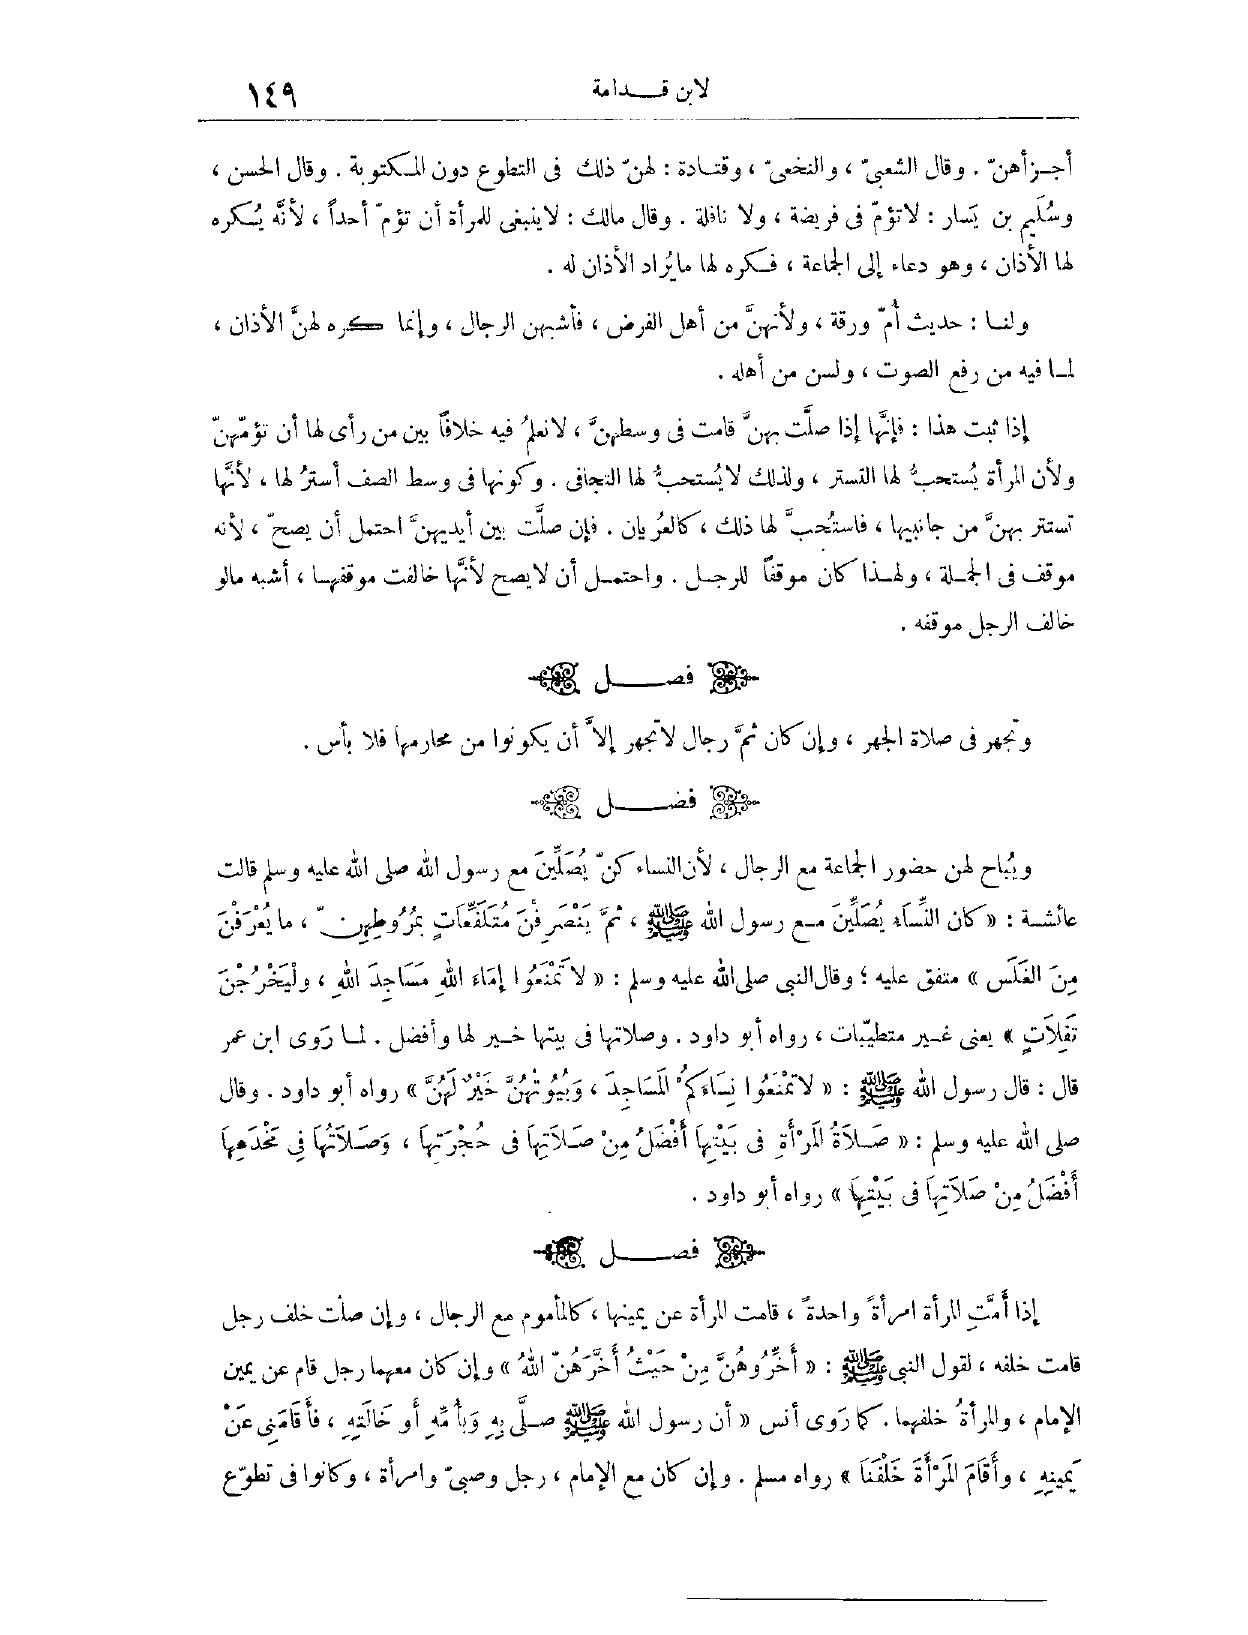 لابن قـــدامة
١٤٩
أجـزأهنّ . وقال الشعبىّ ، والنخعىّ ، وقتـادة : لهنّ ذلك فى التطوع دون المـكتوبة . وقال الحسن ،
وسُلَيم بن يَسار : لاتؤمّ فى فريضة ، ولا نافلة . وقال مالك : لاينبغى للمرأة أن تؤمّ أحداً ، لأنَّه يُسكره
لها الأذان ، وهو دعاء إلى الجماعة ، فـكره لها مايُراد الأذان له .
ولنـا : حديث أُمّ ورقة ، ولأنهنَّ من أهل الفرض ، فأشبهن الرجال ، وإنما كره لهنَّ الأذان ،
لمـا فيه من رفع الصوت ، ولسن من أهله .
إذا ثبت هذا : فإنَّها إذا صلَّت بهنَّ قامت فى وسطهنَّ ، لانعلمُ فيه خلافاً بين من رأى لها أن تؤمّهنّ
ولأن المرأة يُستحبُّ لها التستر ، ولذلك لايُستحبُّ لها التجافى . وكونها فى وسط الصف أسترُ لها ، لأنَّها
تستتر بهنَّ من جانبيها ، فاستُحبَّ لها ذلك ، كالعُريان . فإن صلَّت بين أيديهنَّ احتمل أن يصحّ ، لأنه
موقف فى الجمـلة ، ولهـذا كان موقفاً للرجـل . واحتمـل أن لايصح لأنَّها خالفت موقفهـا ، أشبه مالو
خالف الرجل موقفه .
فصـــل
وتجهر فى صلاة الجهر ، وإن كان ثمَّ رجال لاتجهر إلاَّ أن يكونوا من محارمها فلا بأس .
فصـــل
ويُباح لهن حضور الجماعة مع الرجال ، لأن النساء كنّ يُصَلِّينَ مع رسول الله صلى الله عليه وسلم قالت
عائشـة : « كان النِّسَاء يُصَلِّينَ مـع رسول الله ﷺ ، ثمَّ يَنْصَرِفْنَ مُتَلَفِّعَاتٍ بمُرُوطِهِنّ ، ما يُعْرَفْنَ
مِنَ الغَلَس » متفق عليه ؛ وقال النبى صلى الله عليه وسلم : « لا تَمْنَعُوا إمَاءَ اللهِ مَسَاجِدَ اللهِ ، ولْيَخْرُجْنَ
تَفِلَاتٍ » يعنى غـير متطيّبات ، رواه أبو داود . وصلاتها فى بيتها خـير لها وأفضل . لمـا رَوى ابن عمر
قال : قال رسول الله ﷺ : « لا تمْنَعُوا نِسَاءَكمُ المَسَاجِدَ ، وَبُيُوتهُنَّ خَيْرٌ لَهُنَّ » رواه أبو داود . وقال
صلى الله عليه وسلم : « صَـلاَةُ المَرْأَةِ فى بَيْتِها أَفْضَلُ مِنْ صَـلاَتِها فى حُجْرَتِها ، وَصَـلاَتُها فِى مَخْدَعِها
أَفْضَلُ مِنْ صَلاَتِها فى بَيْتِها » رواه أبو داود .
فصـــل
إذا أَمَّتِ المرأة امرأةً واحدةً ، قامت المرأة عن يمينها ، كالمأموم مع الرجال ، وإن صلّت خلف رجل
قامت خلفه ، لقول النبى ﷺ : « أَخِّرُوهُنَّ مِنْ حَيْثُ أَخَّرَهُنّ اللهُ » وإن كان معهما رجل قام عن يمين
الإمام ، والمرأةُ خلفهما . كما رَوى أنس « أن رسول الله ﷺ صـلَّى بِهِ وَبأُمِّهِ أو خَالَتِهِ ، فأَقَامَنِى عَنْ
يَمِينِهِ ، وأَقَامَ المَرْأَةَ خَلْفَنَا » رواه مسلم . وإن كان مع الإمام ، رجل وصبىّ وامرأة ، وكانوا فى تطوّع